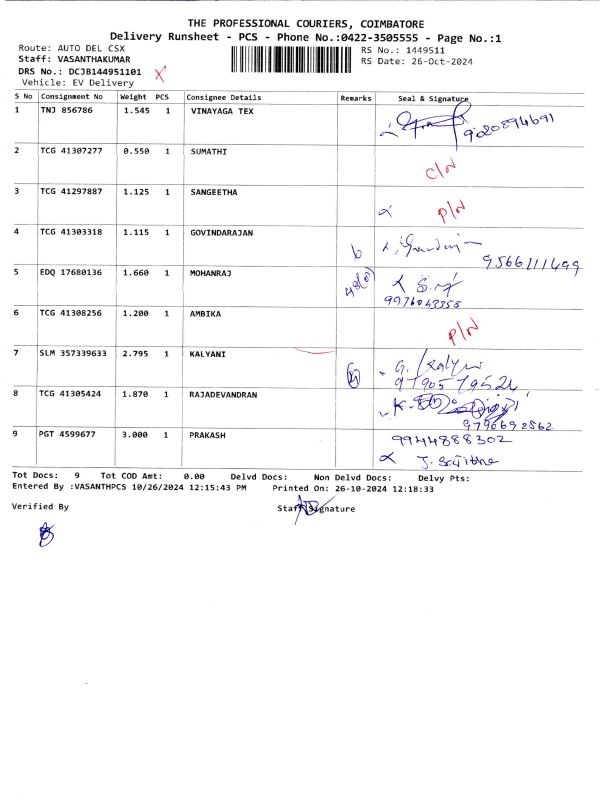 THE PROFESSIONAL COURIERS, COIMBATORE
Delivery Runsheet - PCS - Phone No.:0422-3505555 - Page No.:1
Route: AUTO DEL CSX
RS No.: 1449511
Staff: VASANTHAKUMAR
RS Date: 26-Oct-2024
DRS No.: DCJB144951101 X
Vehicle: EV Delivery
S No Consignment No Weight PCS Consignee Details Remarks Seal & Signature
1 TNJ 856786 1.545 1 VINAYAGA TEX
2 TCG 41307277 0.550 1 SUMATHI C/N
3 TCG 41297887 1.125 1 SANGEETHA P/N
4 TCG 41303318 1.115 1 GOVINDARAJAN
9566111499
5 EDQ 17680136 1.660 1 MOHANRAJ
9976043355
6 TCG 41308256 1.200 1 AMBIKA P/N
7 SLM 357339633 2.795 1 KALYANI G. Kalyani
8 TCG 41305424 1.870 1 RAJADEVANDRAN
9796692862
9 PGT 4599677 3.000 1 PRAKASH 9944888302
Tot Docs: 9 Tot COD Amt: 0.00 Delvd Docs: Non Delvd Docs: Delvy Pts:
Entered By :VASANTHPCS 10/26/2024 12:15:43 PM Printed On: 26-10-2024 12:18:33
Verified By Staff Signature